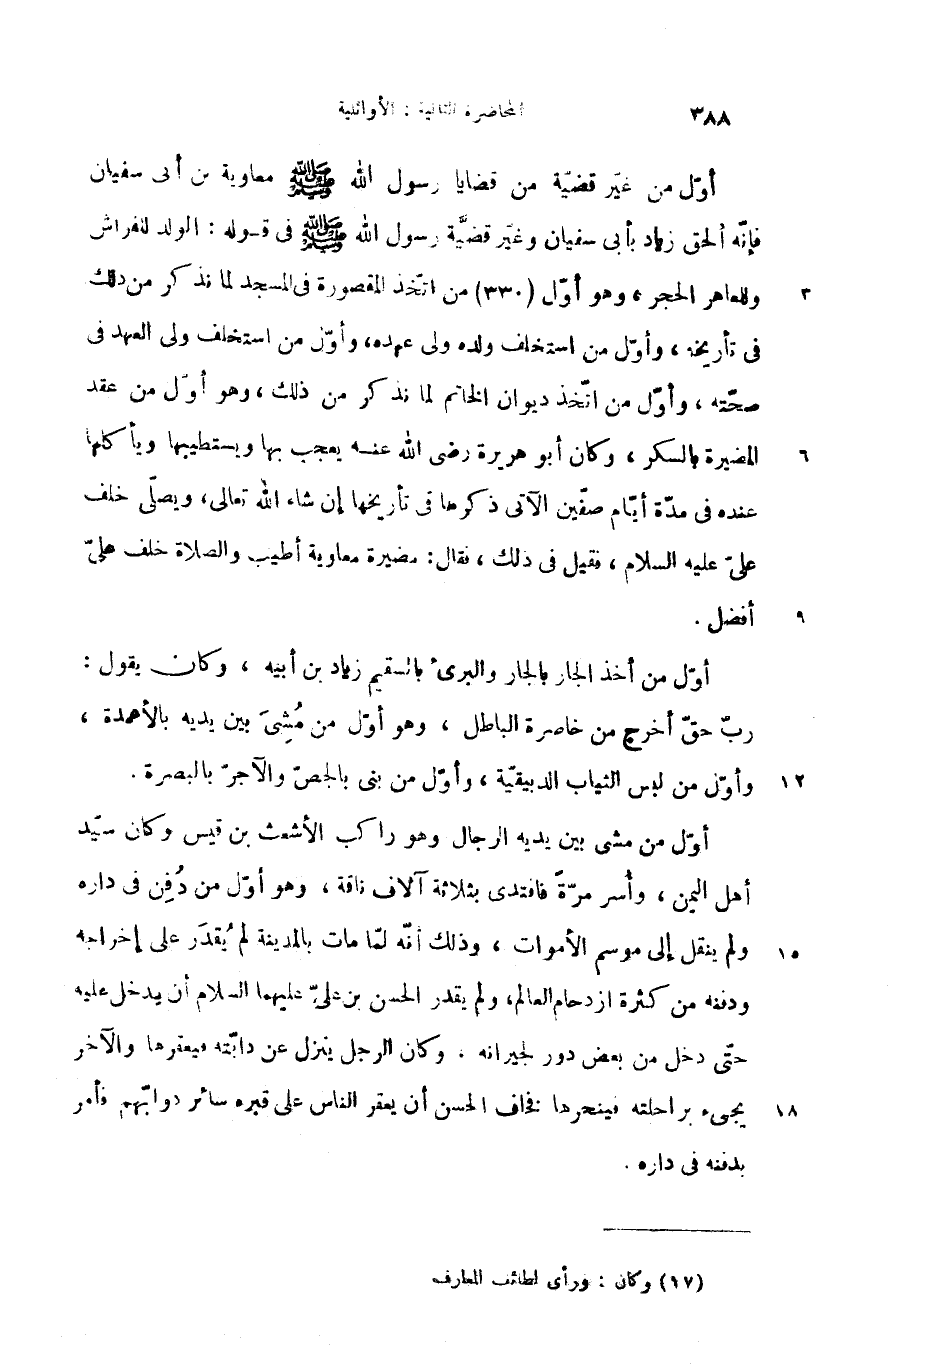 ٣٨٨ المحاضرة الثانية : الأوائلية
أوّل من غيّر قضيّة من قضايا رسول الله ﷺ معاوية بن أبى سفيان
فإنّه ألحق زياد بأبى سفيان وغيّر قضيَّة رسول الله ﷺ فى قوله : الولد للفراش
٣ وللعاهر الحجر ، وهو أوّل (٣٣٠) من اتّخذ المقصورة فى المسجد لما نذكر من ذلك
فى تأريخه ، وأوّل من استخلف ولده ولى عهده، وأوّل من استخلف ولى العهد فى
صحّته ، وأوّل من اتّخذ ديوان الخاتم لما نذكر من ذلك ، وهو أوّل من عقد
٦ المضيرة بالسكر ، وكان أبو هريرة رضى الله عنه يعجب بها ويستطيبها ويأكلها
عنده فى مدّة أيّام صفّين الآتى ذكرها فى تأريخها إن شاء الله تعالى، ويصلّى خلف
علىّ عليه السلام ، فقيل فى ذلك ، فقال: مضيرة معاوية أطيب والصلاة خلف علىّ
٩ أفضل .
أوّل من أخذ الجار بالجار والبرئ بالسقيم زياد بن أبيه ، وكان يقول :
ربّ حقّ أخرج من خاصرة الباطل ، وهو أوّل من مُشِىَ بين يديه بالأعمدة ،
١٢ وأوّل من لبس الثياب الدبيقيّة ، وأوّل من بنى بالجصّ والآجرّ بالبصرة .
أوّل من مشى بين يديه الرجال وهو راكب الأشعث بن قيس وكان سيّد
أهل اليمن ، وأُسر مرّةً فافتدى بثلاثة آلاف ناقة ، وهو أوّل من دُفِن فى داره
١٥ ولم ينقل إلى موسم الأموات ، وذلك أنّه لمّا مات بالمدينة لم يُقدَر على إخراجه
ودفنه من كثرة ازدحام العالم، ولم يقدر الحسن بن علىّ عليهما السلام أن يدخل عليه
حتّى دخل من بعض دور لجيرانه . وكان الرجل ينزل عن دابّته فيعقرها والآخر
١٨ يجىء براحلته فينحرها فخاف الحسن أن يعقر الناس على قبره سائر دوابّهم فأمر
بدفنه فى داره .
(١٧) وكان : ورأى لطائف المعارف